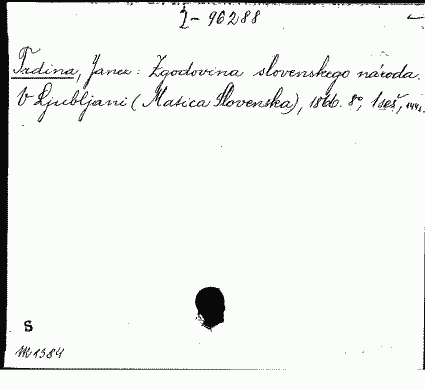 I-96288
Trdina, Janez: Zgodovina slovenskego národa.
V Ljubljani (Matica Slovenska), 1866. 8°, 1 seš,
S
M1384